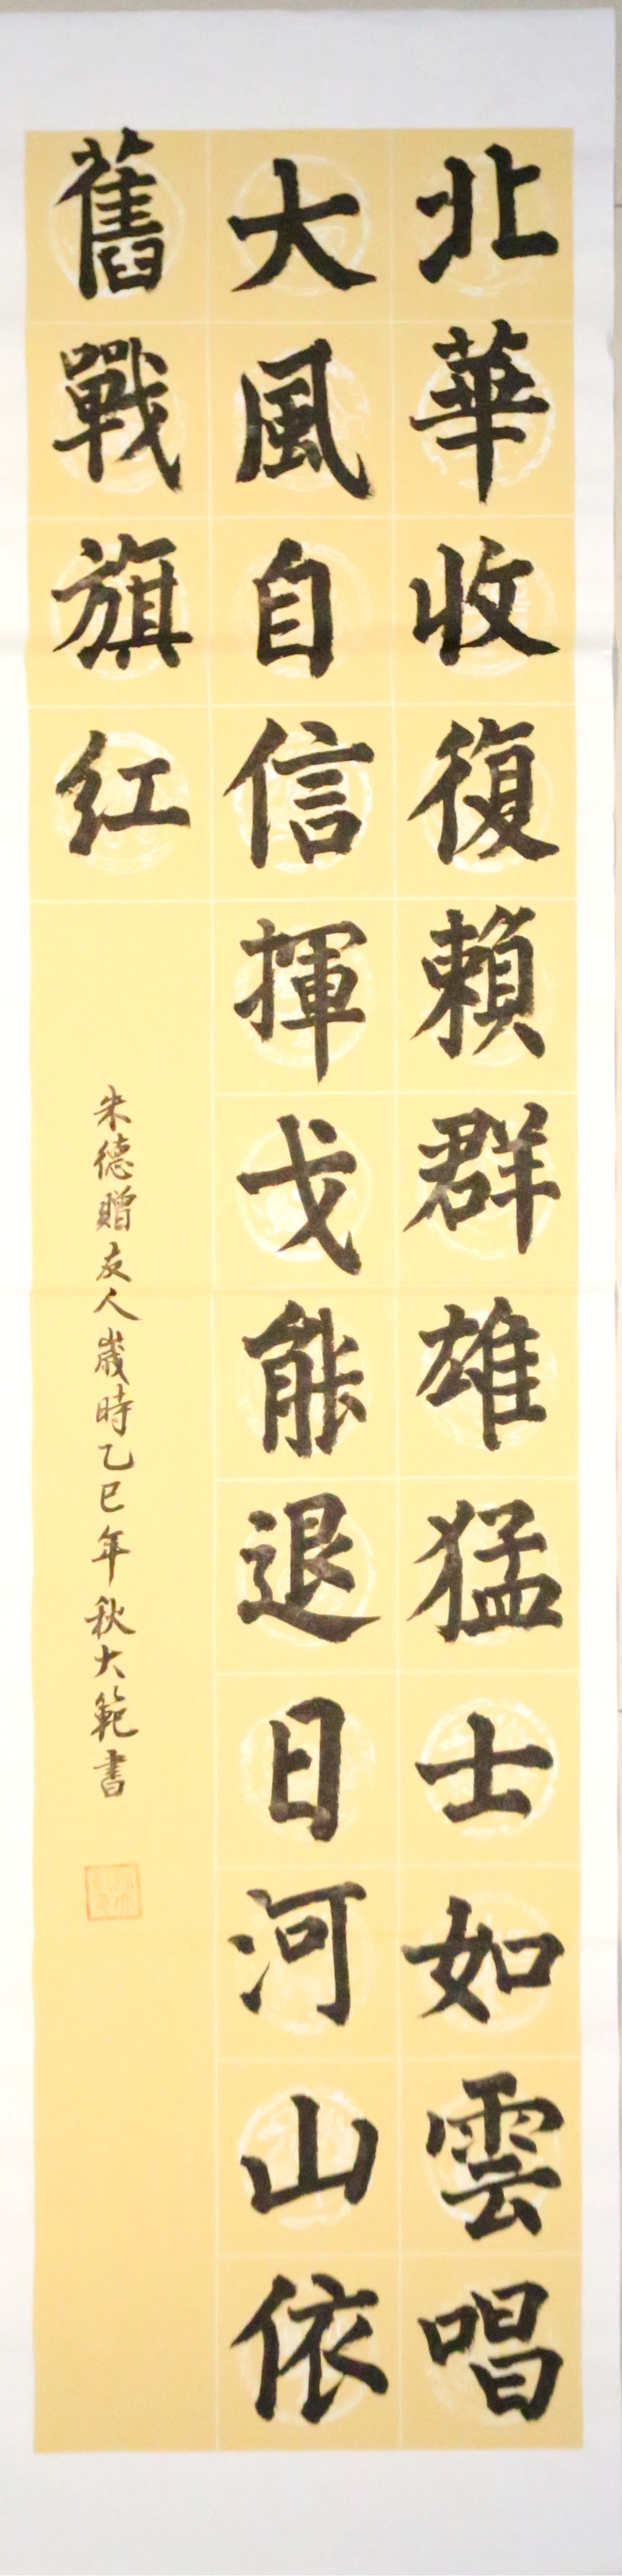 北華收復賴群雄猛士如雲唱
大風自信揮戈能退日河山依
舊戰旗红
朱德贈友人歲時乙巳年秋大範書